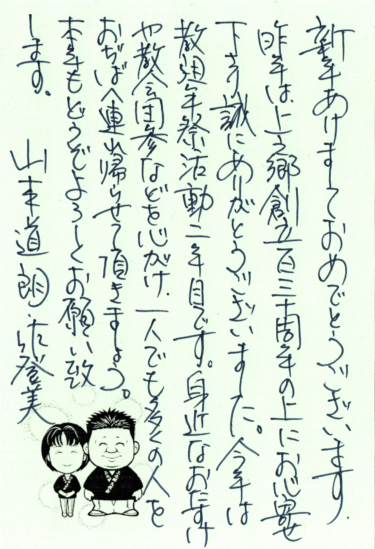 新年あけましておめでとうございます。
昨年は上之郷創立百三十周年の上にお心寄せ
下さり誠にありがとうございました。今年は
教祖年祭活動二年目です。身近なおたすけ
や教会団参などを心がけ、一人でも多くの人を
おぢばへ連れ帰らせて頂きましょう。
本年もどうぞよろしくお願い致
します。
山本道朗・登美